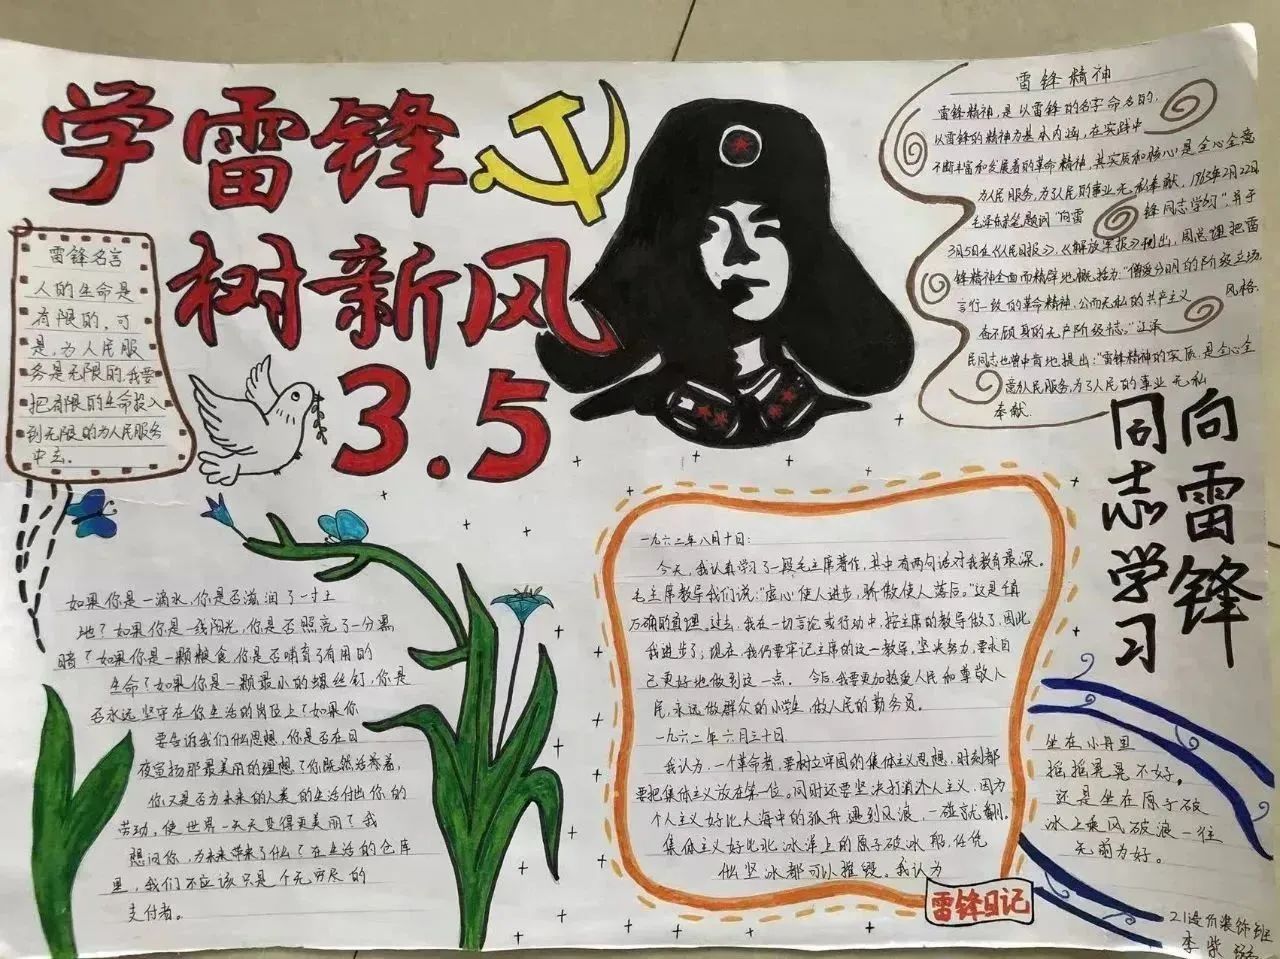 学雷锋
树新风
3.5
雷锋名言
人的生命是
有限的，可
是，为人民服
务是无限的，我要
把有限的生命投入
到无限的为人民服务
中去。
雷锋精神
雷锋精神，是以雷锋的名字命名的，
以雷锋的精神为基本内涵，在实践中
不断丰富和发展着的革命精神，其实质和核心是全心全意
为人民服务，为了人民的事业无私奉献，1963年2月22日
毛泽东亲笔题词"向雷锋同志学习"，并于
3月5日在《人民日报》，《解放军报》刊出，周总理把雷
锋精神全面而精辟地概括为："憎爱分明的阶级立场，
言行一致的革命精神，公而无私的共产主义风格，
奋不顾身的无产阶级斗志。"江泽
民同志也曾中肯地提出："雷锋精神的实质，是全心全
意为人民服务，为了人民的事业无私
奉献。
向雷锋
同志学习
如果你是一滴水，你是否滋润了一寸土
地？如果你是一线阳光，你是否照亮了一分黑
暗？如果你是一颗粮食，你是否哺育了有用的
生命？如果你是一颗最小的螺丝钉，你是
否永远坚守在你生活的岗位上？如果你
要告诉我们什么思想，你是否在日
夜宣扬那最美丽的理想？你既然活着，
你又是否为未来的人类的生活付出你的
劳动，使世界一天天变得更美丽？我
想问你，为未来带来了什么？在生活的仓库
里，我们不应该只是个无穷尽的
支付者。
一九六二年八月十日：
今天，我认真学习了一段毛主席著作，其中有两句话对我教育最深。
毛主席教导我们说："虚心使人进步，骄傲使人落后。"这是千真
万确的真理。过去，我在一切言论或行动中，按主席的教导做了，因此
我进步了，现在，我仍要牢记主席的这一教导，坚决努力，要求自
己更好地做到这一点。今后，我要更加热爱人民和尊敬人
民，永远做群众的小学生，做人民的勤务员。
一九六二年六月三十日
我认为，一个革命者，要树立牢固的集体主义思想，时刻都
要把集体主义放在第一位。同时还要坚决打消个人主义，因为
个人主义好比大海中的孤舟遇到风浪，一碰就翻。
集体主义好比北冰洋上的原子破冰船，任凭
什么坚冰都可以摧毁。我认为
雷锋日记
坐在小舟里
摇摇晃晃不好。
还是坐在原子破
冰上乘风破浪一往
无前为好。
21造价装饰班
李紫